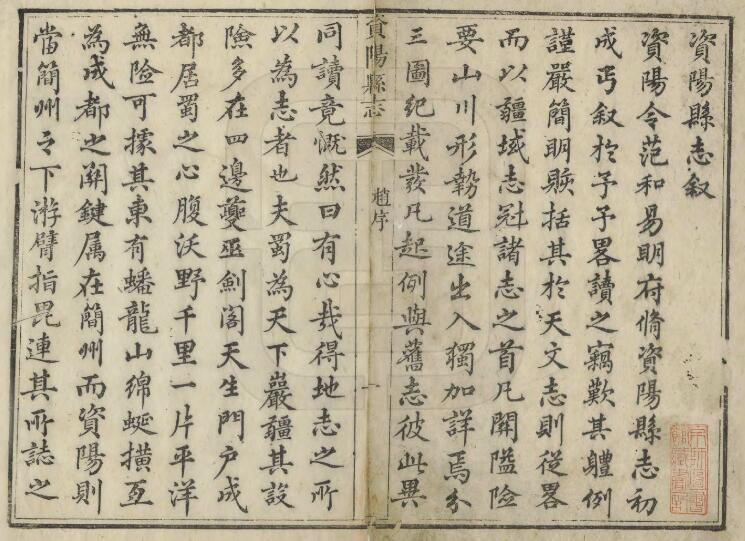 資陽縣志叙
資陽令范和昜明府脩資陽縣志初
成丐叙於予予畧讀之竊歎其體例
謹嚴簡明賅括其於天文志則從畧
而以疆域志冠諸志之首凡關隘險
要山川形勢道途出入獨加詳焉分
三圖紀載發凡起例與舊志彼此異
資陽縣志
趙序
一
同讀竟慨然曰有心哉得地志之所
以為志者也夫蜀為天下嚴疆其設
險多在四邊夔巫劍閣天生門户成
都居蜀之心腹沃野千里一片平洋
無險可據其東有蟠龍山綿蜒擴亙
為成都之關鍵属在簡州而資陽則
當簡州之下游臂指毘連其所誌之